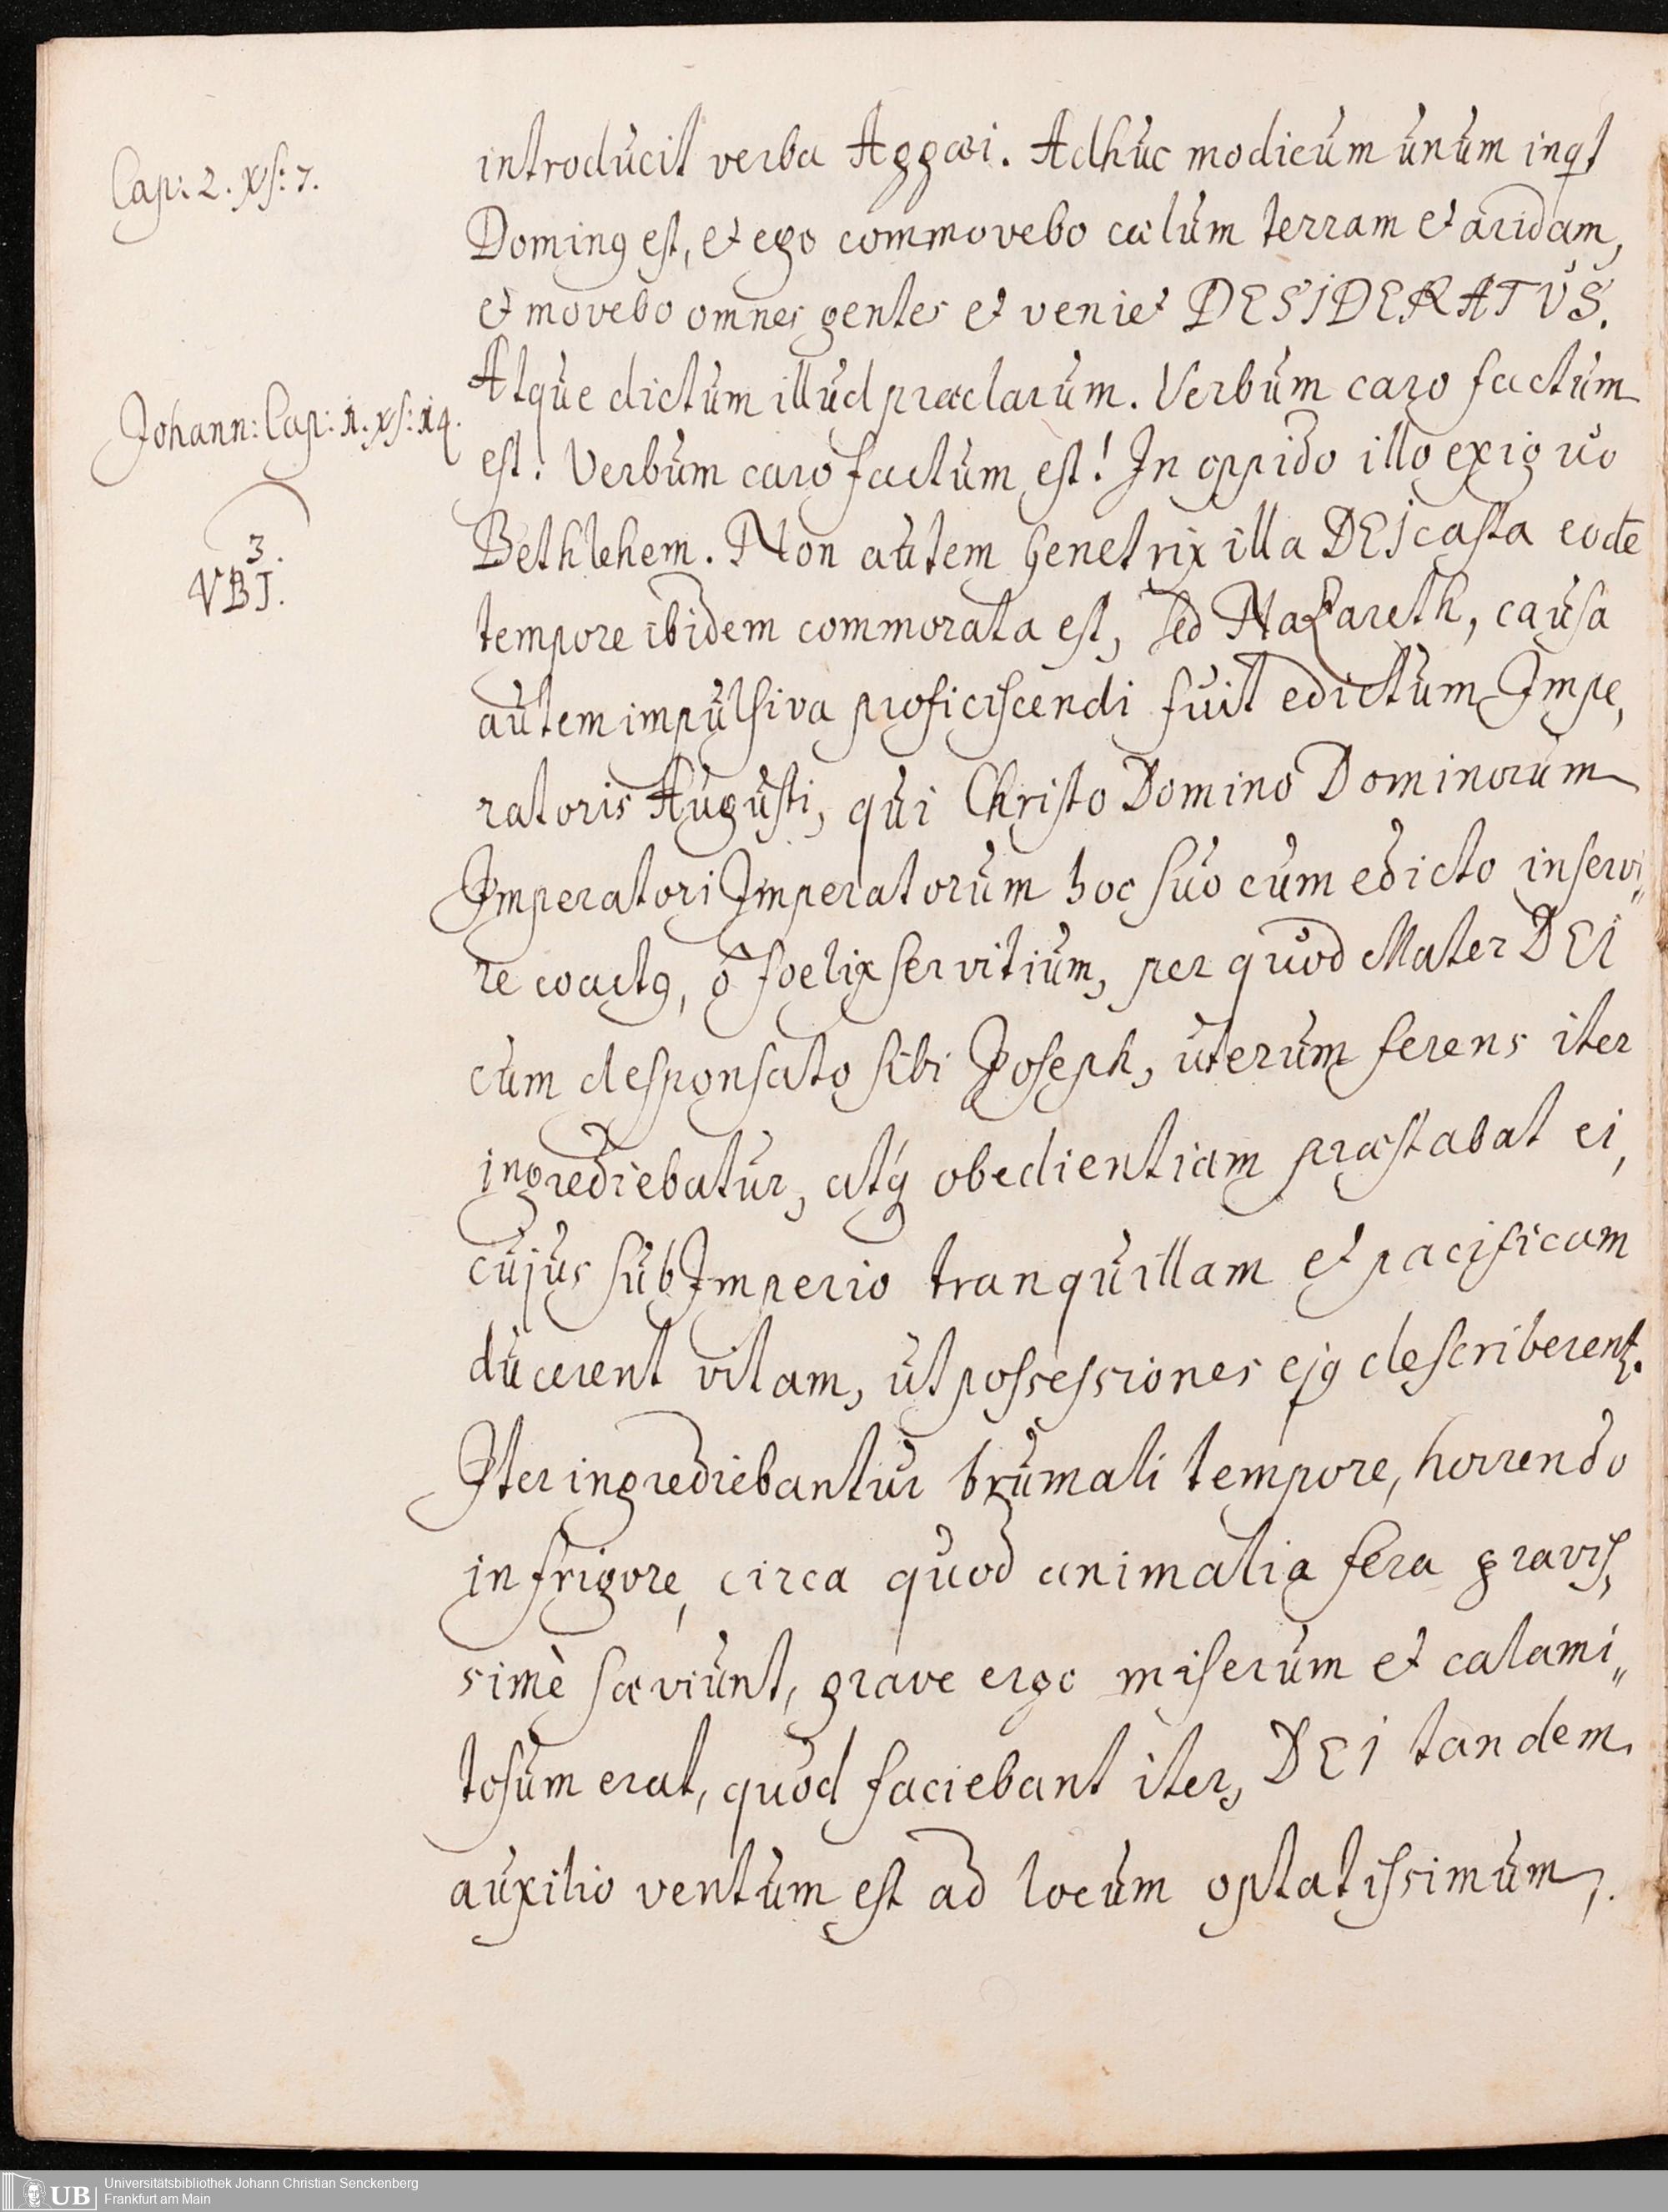 Cap: 2. xs: 7.
introducit verba Aggæi. Adhuc modicum unum inqt
Dominꝰ est, et ego commovebo cælum terram et aridam,
et movebo omnes gentes et veniet DESIDERATUS.
Atque dictum illud præclarum. Verbum caro factum
Johann: Cap: 1. xs: 14.
est! Verbum caro factum est! In oppido illo exiguo
3.
VBI.
Bethlehem. Non autem genetrix illa DEI casta eodē
tempore ibidem commorata est, sed Nazareth, causa
autem impulsiva proficiscendi fuit edictum Impe,
ratoris Augusti, qui Christo Domino Dominorum
Imperatori Imperatorum hoc suo cum edicto inservi„
re coactꝰ, ô foelix servitium, per quod Mater DEI
cum desponsato sibi Joseph, uterum ferens iter
ingrediebatur, atq́ obedientiam præstabat ei,
cujus sub Imperio tranquillam et pacificam
ducerent vitam, ut possessiones ejꝰ describerent.
Iter ingrediebantur brumali tempore, horrendo
in frigore, circa quod animalia fera gravis,
simè sæviunt, grave ergo miserum et calami„
tosum erat, quod faciebant iter, DEI tandem
auxilio ventum est ad locum optatissimum,.
Universitätsbibliothek Johann Christian Senckenberg
UB Frankfurt am Main